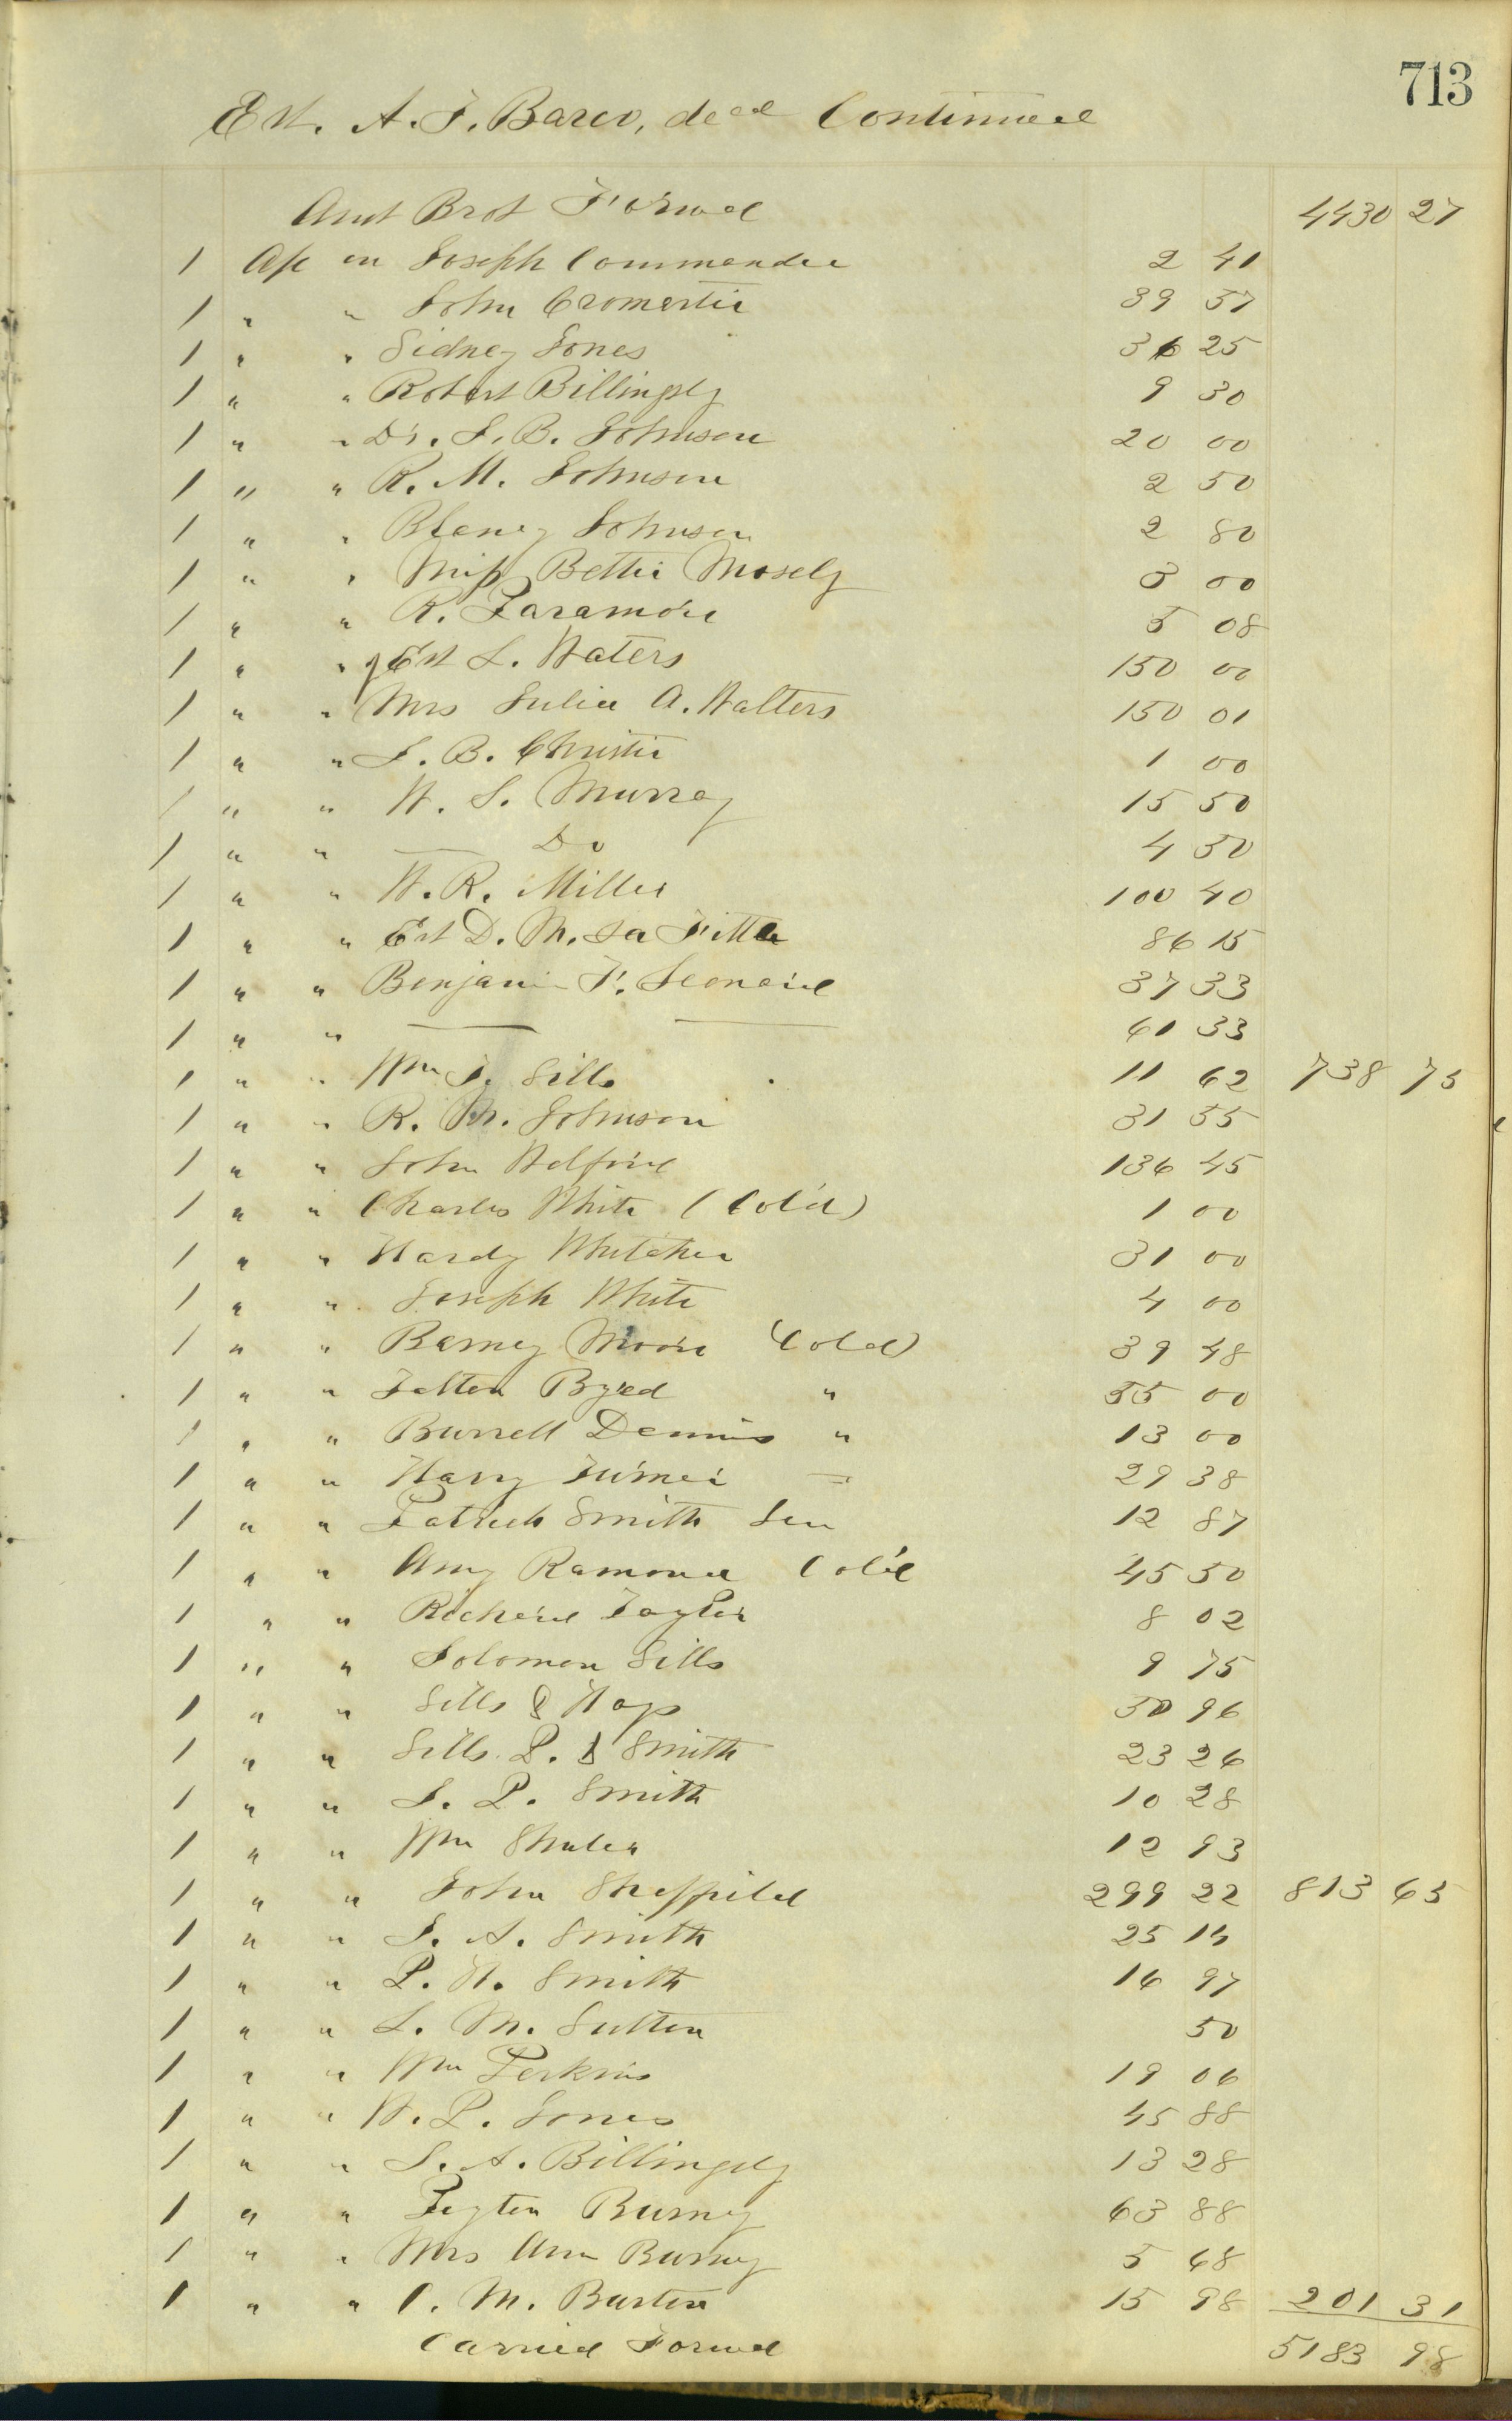 713
Est. A. F. Barco, decd Continued
Amt Brot Forwd 4430 27
1 A/c on Joseph Commander 2 41
1 " " John Cromertie 39 57
1 " " Sidney Jones 36 25
1 " " Robert Billingsly 9 30
1 " " Dr. J. B. Johnson 20 00
1 " " R. M. Johnson 2 50
1 " " Blaney Johnson 2 80
1 " " Miss Bettie Mosely 3 00
1 " " R. Paramore 5 08
1 " " Est L. Waters 150 00
1 " " Mrs Julia A. Walters 150 01
1 " " J. B. Christie 1 00
1 " " W. S. Murray 15 50
1 " " Do 4 50
1 " " W. R. Miller 100 40
1 " " Est D. M. La Fitte 86 15
1 " " Benjamin F. Leonard 37 33
1 " " 61 33
1 " " Wm J. Sills 11 62 738 75
1 " " R. M. Johnson 31 55
1 " " John Welford 136 45
1 " " Charles White (Col'd) 1 00
1 " " Hardy Whitaker 31 00
1 " " Joseph White 4 00
1 " " Barney Moore (Cold) 39 48
1 " " Felton Byrd " 35 00
1 " " Burrell Dennis " 13 00
1 " " Harry Turner " 29 38
1 " " Patrick Smith Sen 12 87
1 " " Amy Ramond Col'd 45 50
1 " " Richard Taylor 8 02
1 " " Solomon Sills 9 75
1 " " Sills & Hop 30 96
1 " " Sills P. & Smith 23 26
1 " " J. P. Smith 10 28
1 " " Wm Shuler 12 93
1 " " John Sheffield 299 22 813 65
1 " " J. A. Smith 25 14
1 " " P. H. Smith 16 97
1 " " L. M. Sutton 50
1 " " Wm Perkins 19 06
1 " " W. P. Jones 45 88
1 " " J. A. Billingsly 13 28
1 " " Peyton Burney 63 88
1 " " Mrs Ann Burney 5 68
1 " " C. M. Barton 15 98 201 31
Carried Forwd 5183 98